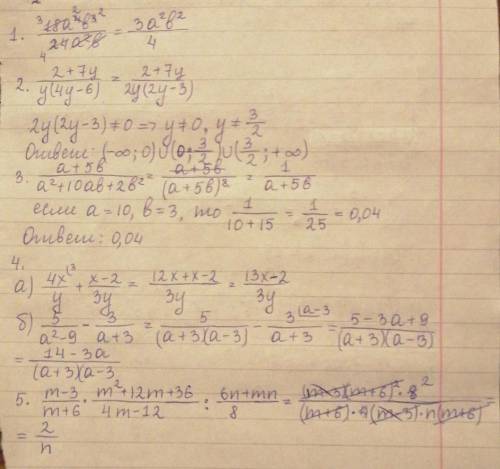 1. 18a⁴b³/24a²b = 3a²b²/4
2. (2+7y)/(y(4y-6)) = (2+7y)/(2y(2y-3))
2y(2y-3) ≠ 0 => y ≠ 0, y ≠ 3/2
Ответ: (-∞; 0)∪(0; 3/2)∪(3/2; +∞)
3. (a+5b)/(a²+10ab+2b²) = (a+5b)/(a+5b)² = 1/(a+5b)
если a=10, b=3, то 1/(10+15) = 1/25 = 0,04
Ответ: 0,04
4.
а) 4x⁽³/y + (x-2)/3y = (12x+x-2)/3y = (13x-2)/3y
б) 5/(a²-9) - 3/(a+3) = 5/((a+3)(a-3)) - 3⁽ᵃ⁻³/(a+3) = (5-3a+9)/((a+3)(a-3)) =
= (14-3a)/((a+3)(a-3)
5. (m-3)/(m+6) · (m²+12m+36)/(4m-12) : (6n+mn)/8 = ((m-3)(m+6)²·8²)/((m+6)·4(m-3)·n(m+6)) =
= 2/n